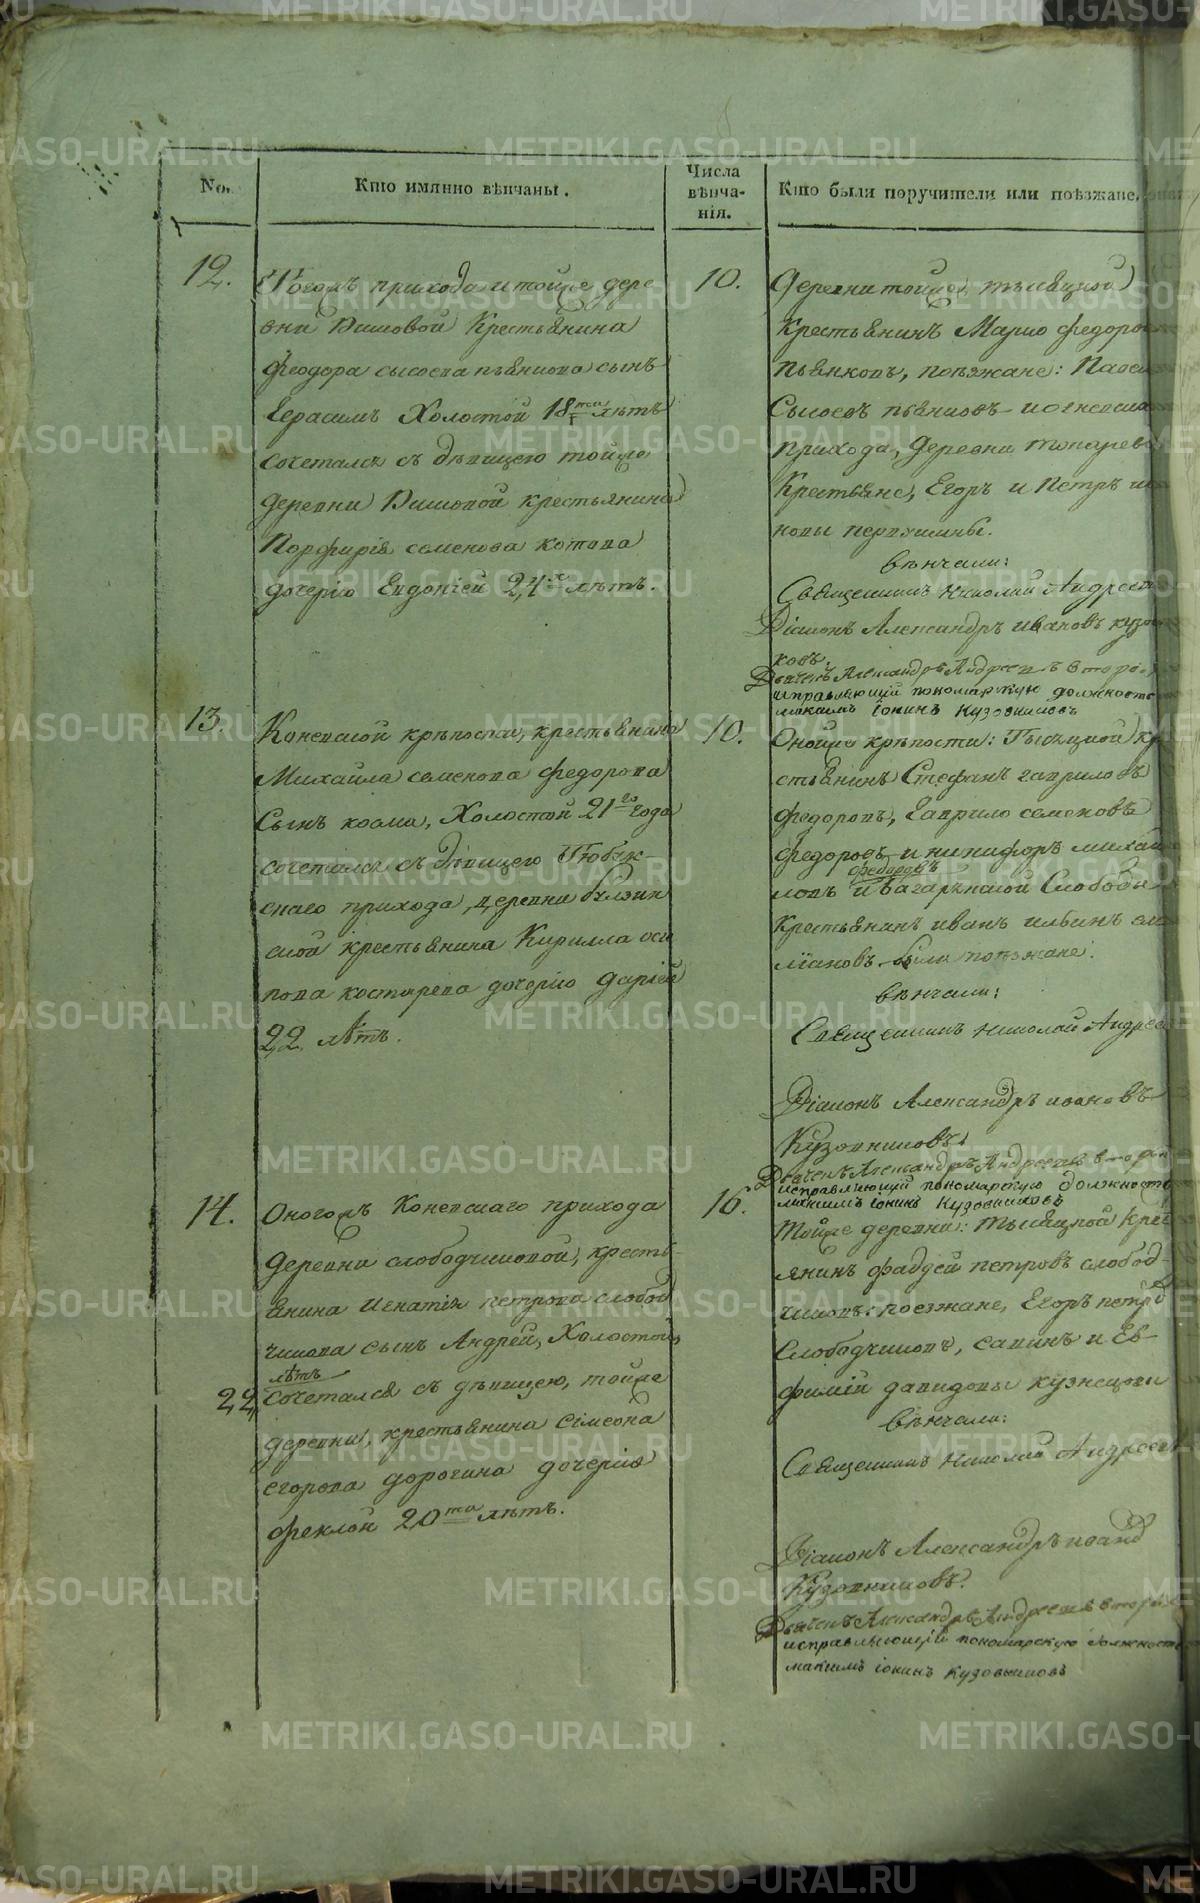 No.
Кто имянно вѣнчаны.
Числа
вѣнча-
нія.
Кто были поручители или поѣзжане,
12.
приходо и тойже дере
вни Крестьянина
Феодора сысоева пьянкова сынъ
Герасимъ Холостой 18ти лѣтъ
сочетался съ дѣвицею тойже
деревни крестьянина
Порфирія семенова котова
дочерію Евдокіей 24х лѣтъ.
10.
Деревни тойже тысяцкой
крестьянинъ Марко федоро
пьянковъ, поѣзжане:
Сысоевъ пьянковъ
прихода, деревни токарево
Крестьяне, Егоръ и Петръ
новы
вѣнчали:
Священникъ Николай Андреев
Діаконъ Александръ Ивановъ кузо
ковъ.
Дьячекъ Александръ Андреевъ второй
исправляющій пономарскую должность
максимъ іонинъ кузовниковъ
13.
Коневской крѣпости, крестьянина
Михаила семенова федорова
Сынъ козма, Холостой 21го года
сочетался съ дѣвицею Тюбук-
скаго прихода, деревни
ской крестьянина Кирилла оси
пова костарева дочерію Даріей
22 лѣтъ.
10.
Онойже крѣпости: Тысяцкой кр
стьянинъ Стефанъ гавриловъ
федоровъ, Гаврило семеновъ
федоровъ, и никифоръ михай
федоровъ
ловъ и Багарякской Слободы
крестьянинъ иванъ ильинъ
были поѣзжане.
вѣнчали:
Священникъ Николай Андрее
Діаконъ Александръ ивановъ
Кузовниковъ.
Дьячекъ Александръ Андреевъ второй
исправляющій пономарскую должность
максимъ іонинъ Кузовниковъ
14.
Оногожъ Коневскаго прихода
деревни слободчиковой, кресть-
янина Игнатія петрова слобод
чикова сынъ Андрей, Холостой,
лѣтъ
22 сочетался съ дѣвицею, тойже
деревни, крестьянина Сімеона
егорова дорогина дочерію
феклой 20ти лѣтъ.
16.
Тойже деревни: тысяцкой крес
янинъ фаддей петровъ слобод-
чиковъ: поезжане, Егоръ петро
Слободчиковъ, савинъ и Ев-
фимій давидовы кузнецовы
вѣнчали:
Священникъ Николай Андреев
Діаконъ Александръ иванов
Кузовниковъ.
Дьячекъ Александръ Андреевъ второй
исправляющій пономарскую должность
максимъ іонинъ кузовниковъ
METRIKI.GASO-URAL.RU